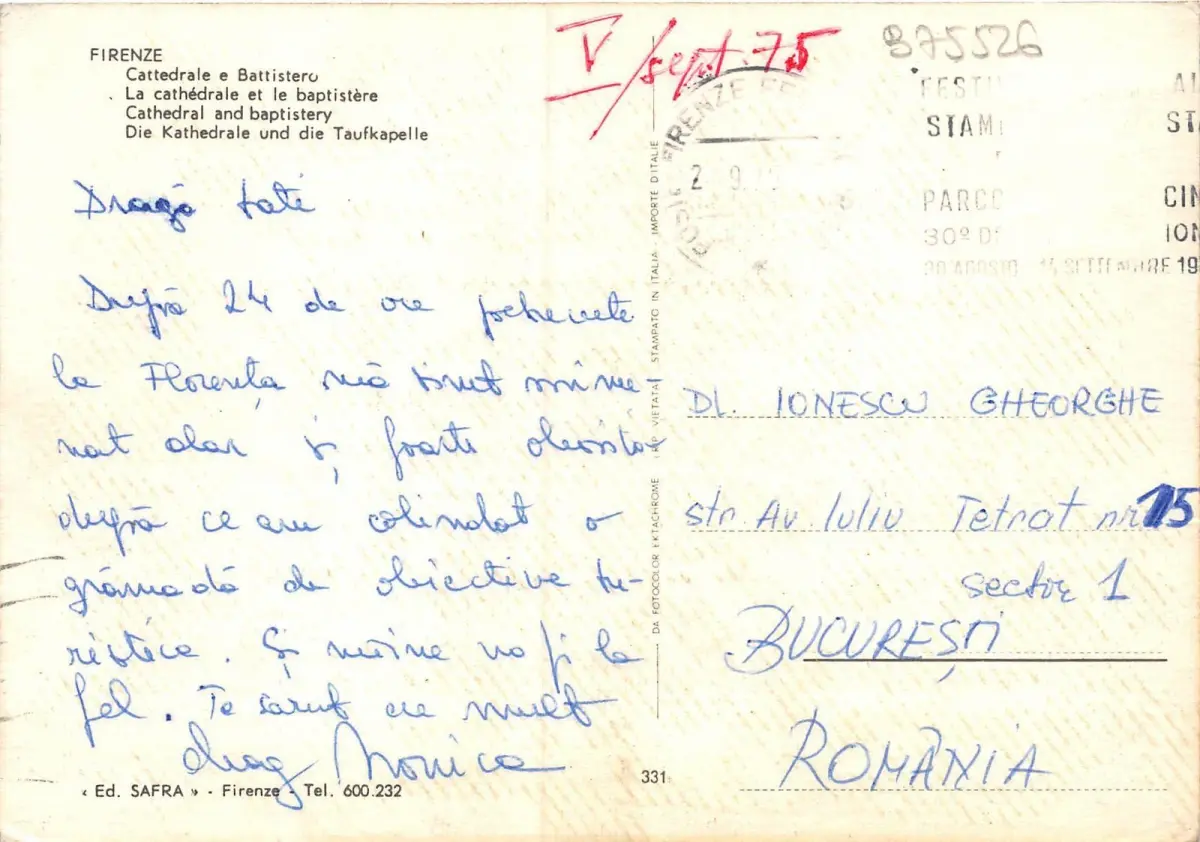 FIRENZE
Cattedrale e Battistero
La cathédrale et le baptistère
Cathedral and baptistery
Die Kathedrale und die Taufkapelle
V/sept. 75
Dragă tati
După 24 de ore petrecute
la Florența mă simt minu-
nat dar și foarte obosită
după ce am colindat o
grămadă de obiective tu-
ristice. Și mâine va fi la
fel. Te sărut cu mult
drag Monica
« Ed. SAFRA » - Firenze - Tel. 600.232
331
DA FOTOCOLOR EKTACHROME RIP. VIETATA STAMPATO IN ITALIA - IMPORTE D'ITALIE
875526
POSTE FIRENZE FE
2 9.75
FESTI AL
STAM ST
PARCO CIN
30º D ION
30 AGOSTO 14 SETTEMBRE 19
Dl. IONESCU GHEORGHE
str. Av Iuliu Tetrat nr 15
sector 1
BUCUREȘTI
ROMÂNIA